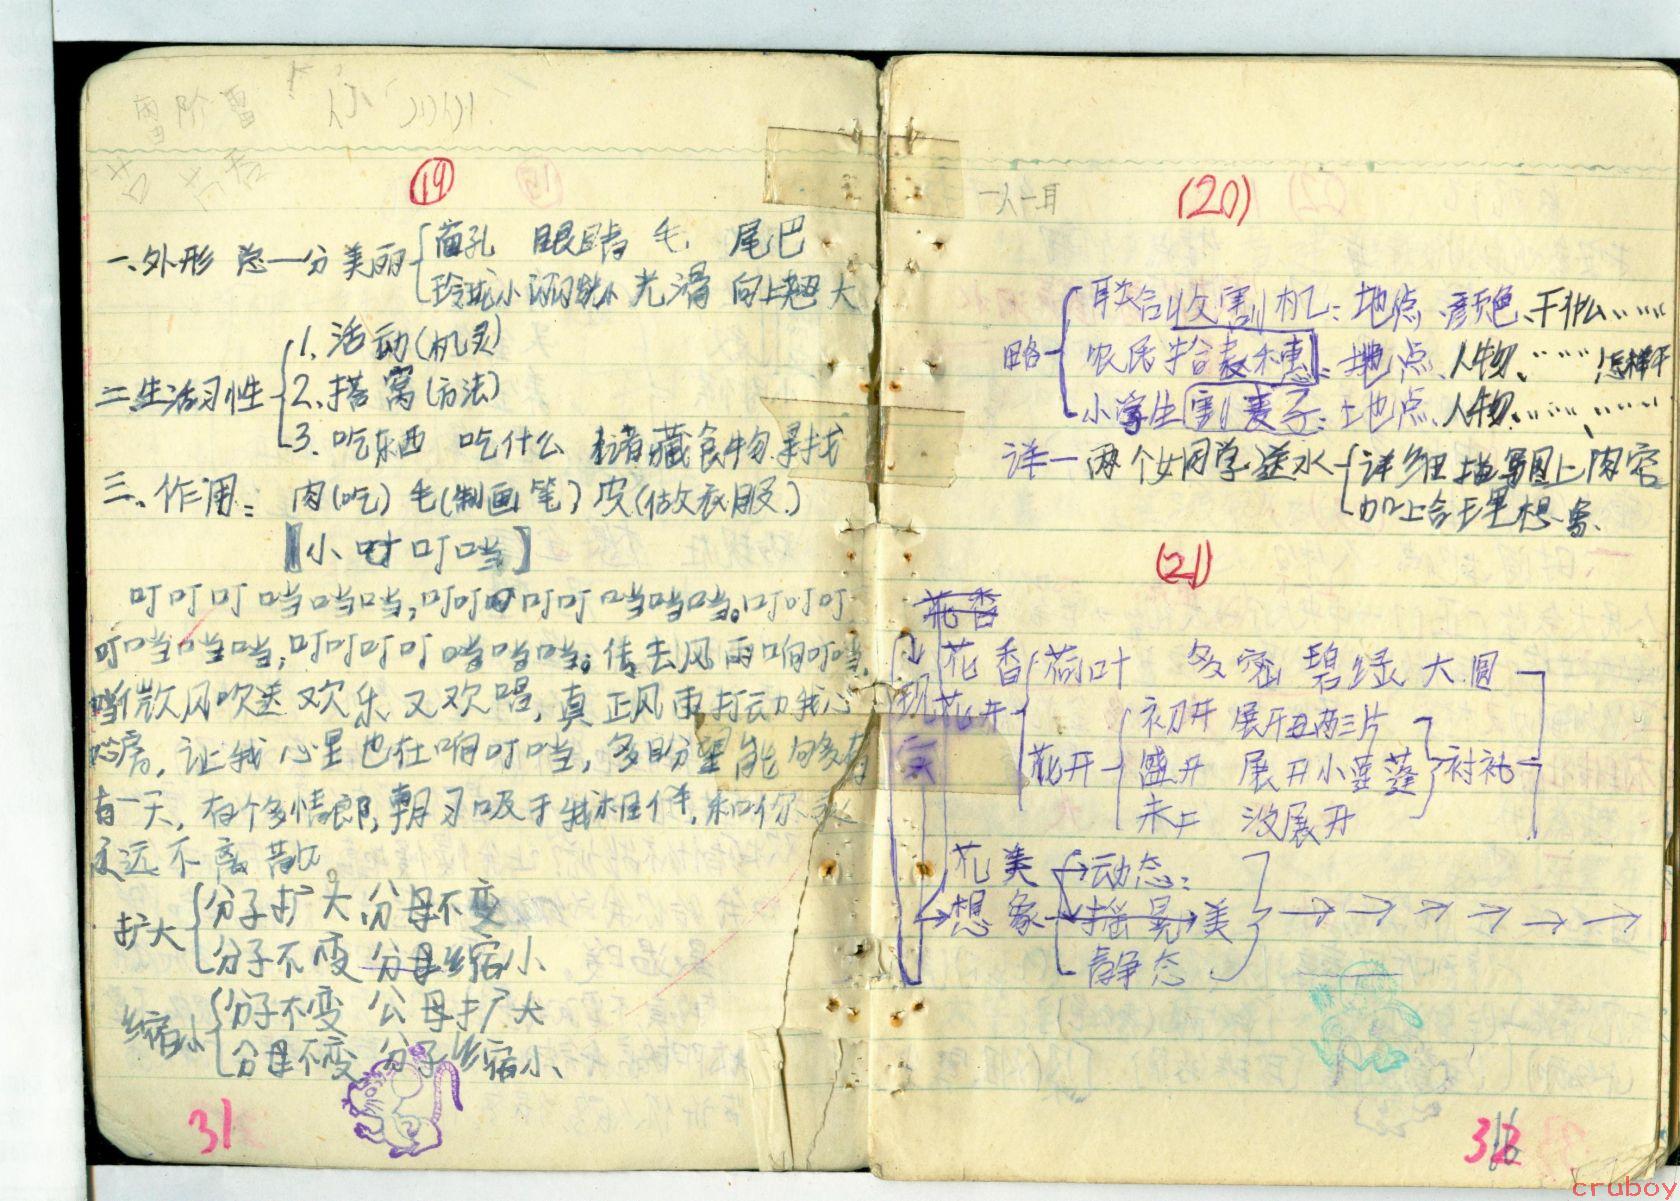 (19)
一、外形 总一分 美丽 面孔 眼睛 毛 尾巴
玲珑小 闪闪 光滑 向上翘 大
二生活习性 1、活动(机灵)
2、搭窝(方法)
3、吃东西 吃什么 储藏食物 寻找
三、作用: 肉(吃) 毛(制画笔) 皮(做衣服)
【小叮叮当】
叮叮叮 当当当, 叮叮叮叮叮 当当当。叮叮叮
叮当当当, 叮叮叮叮 当当当。传去风雨响叮当,
微风吹送 欢乐又欢唱, 真正风雨打动我心
心房, 让我心里也在响叮当, 多盼望能够有
有一天, 有个多情郎, 和你永
永远不离散。
扩大 分子扩大 分母不变
分子不变 分母缩小
缩小 分子不变 公母扩大
分母不变 分子缩小、
31
一人一耳
(20)
略 联合收割机: 地点、颜色、干什么……
农民 : 地点、人物、…… 怎样干
小学生割麦子: 地点、人物、……
详一两个女同学送水 详细描写图上内容
加上合理想象、
(21)
花香
现实 花香 荷叶 多 密 碧绿 大 圆
花开
花开 初开 展开 两三片
盛开 展开 小莲蓬 衬礼
未上 没展开
花美 动态:
想象 摇晃 美
静态
32
cruboy